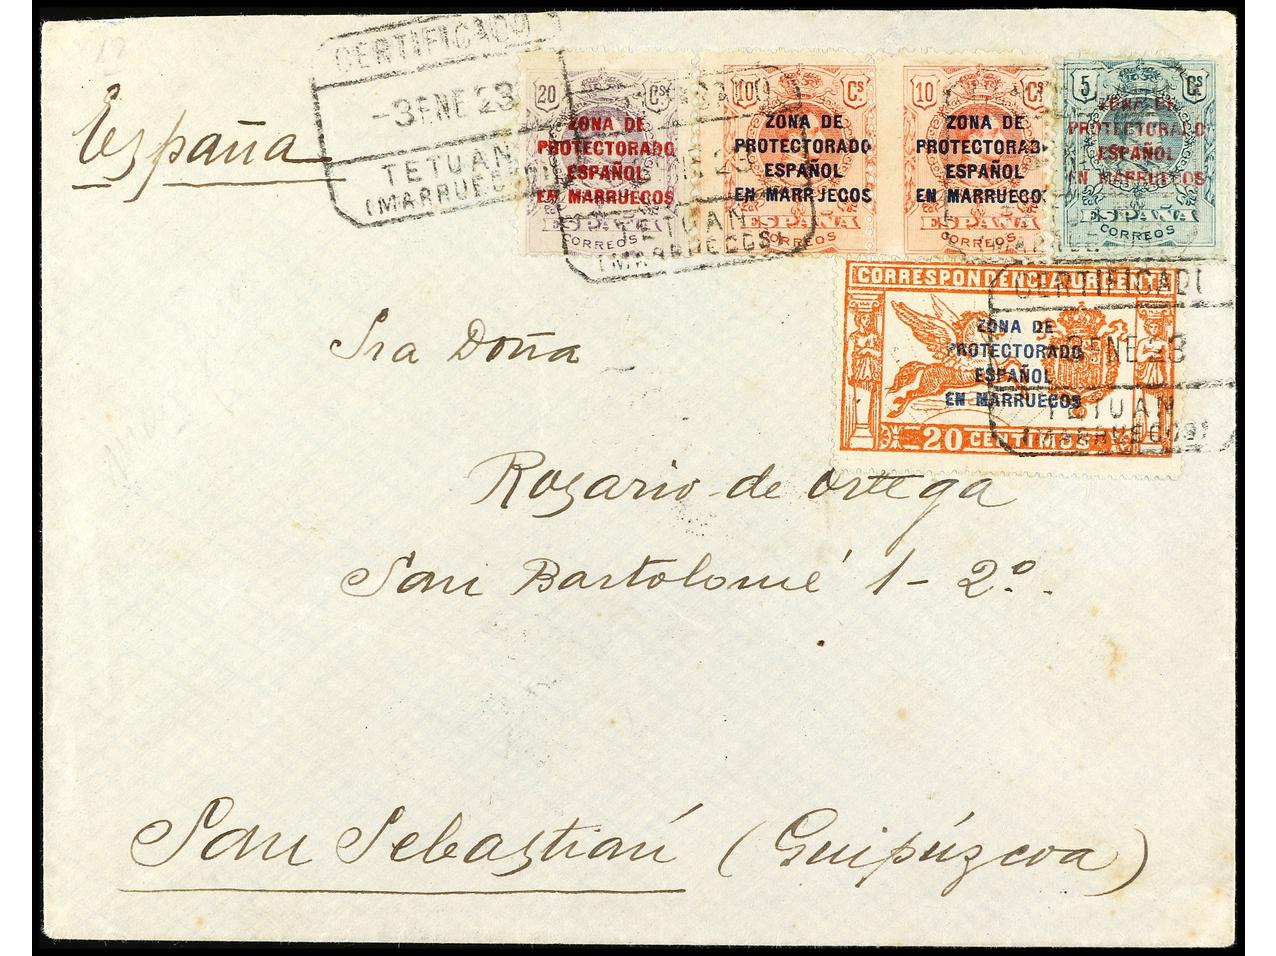 España
CERTIFICADO
-3 ENE 23
TETUAN
(MARRUECOS)
20 Cs.
ZONA DE
PROTECTORADO
ESPAÑOL
EN MARRUECOS
CORREOS
10 Cs.
ZONA DE
PROTECTORADO
ESPAÑOL
EN MARRUECOS
ESPAÑA
CORREOS
10
ZONA DE
PROTECTORADO
ESPAÑOL
EN MARRUECOS
ESPAÑA
CORREOS
5 Cs.
ZONA DE
PROTECTORADO
ESPAÑOL
EN MARRUECOS
ESPAÑA
CORREOS
TETUAN
(MARRUECOS)
CORRESPONDENCIA URGENTE
ZONA DE
PROTECTORADO
ESPAÑOL
EN MARRUECOS
20 CENTIMOS
CERTIFICADO
3 ENE 23
TETUAN
(MARRUECOS)
Sra Doña
Rosario de Ortega
San Bartolomé 1-2º.
San Sebastián (Guipúzcoa)